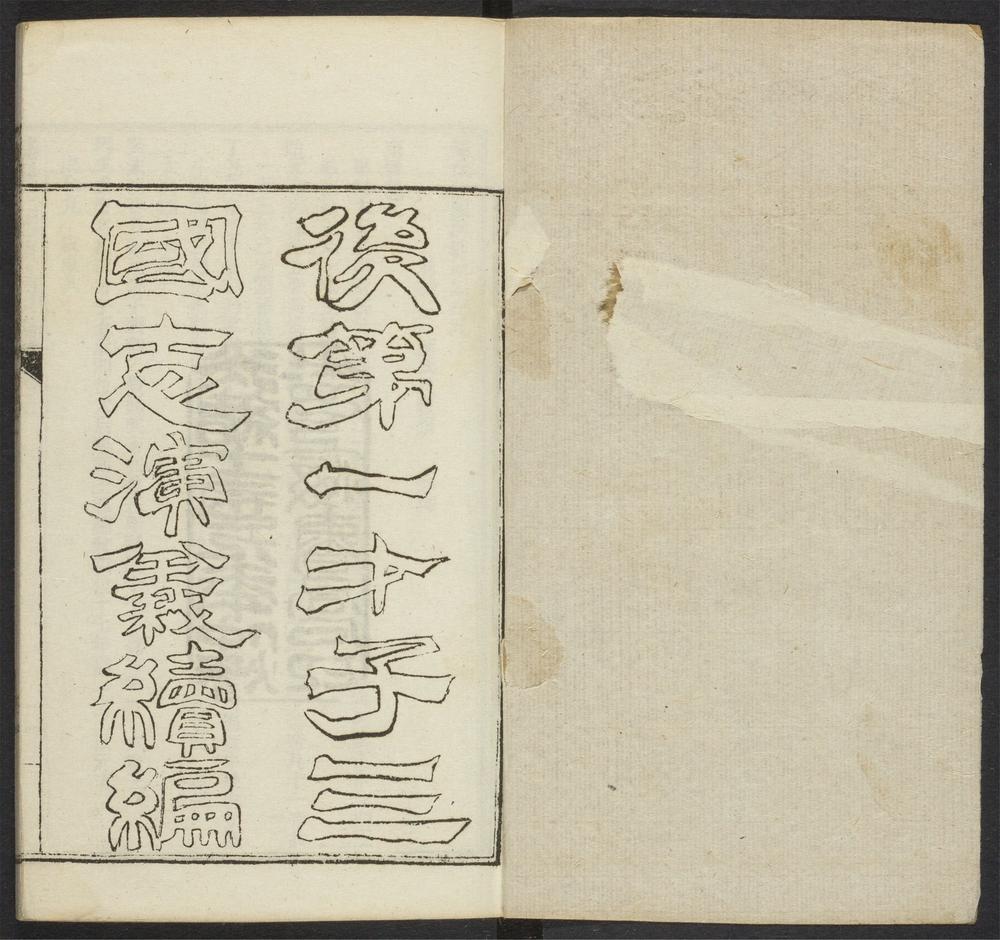 後第一才子三
國志演義續編